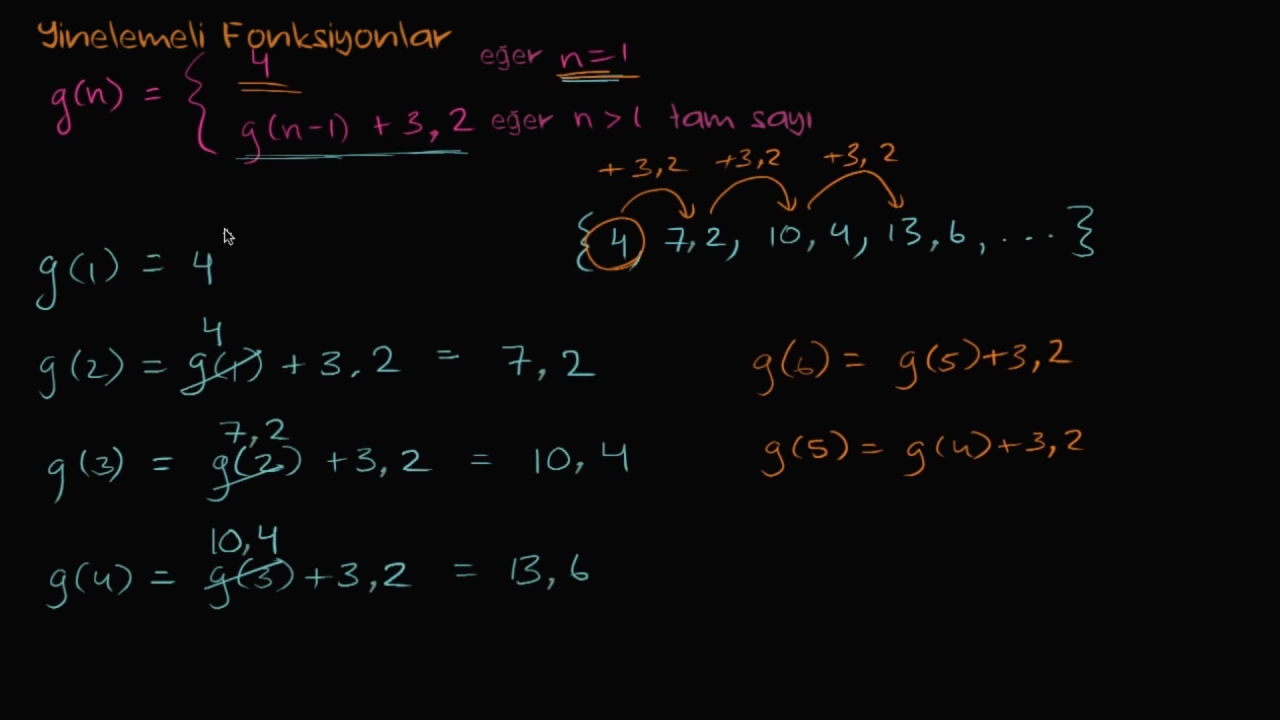 Yinelemeli Fonksiyonlar
g(n) = { 4 eğer n=1
g(n-1) + 3,2 eğer n>1 tam sayı
+3,2 +3,2 +3,2
{ 4, 7,2, 10,4, 13,6, ... }
g(1) = 4
4
g(2) = g(1) + 3,2 = 7,2
g(6) = g(5)+3,2
7,2
g(3) = g(2) +3,2 = 10,4
g(5) = g(4)+3,2
10,4
g(4) = g(3)+3,2 = 13,6